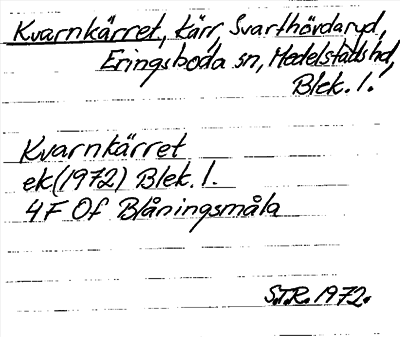 Kvarnkärret, kärr, Svarthövdaryd,
Eringsboda sn, Medelstads hd,
Blek. l.
Kvarnkärret
ek(1972) Blek. l.
4F Of Blåningsmåla
S.T.R. 1972.